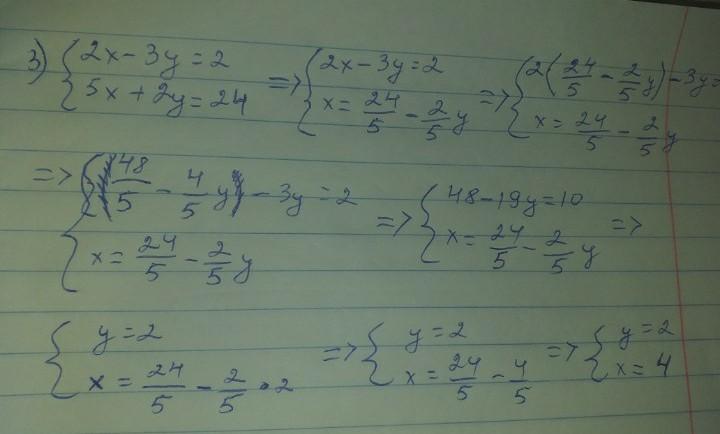 3) { 2x - 3y = 2 ; 5x + 2y = 24 => { 2x - 3y = 2 ; x = 24/5 - 2/5 y => { 2(24/5 - 2/5 y) - 3y = ; x = 24/5 - 2/5 y
=> { 48/5 - 4/5 y - 3y = 2 ; x = 24/5 - 2/5 y => { 48 - 19y = 10 ; x = 24/5 - 2/5 y =>
{ y = 2 ; x = 24/5 - 2/5 · 2 => { y = 2 ; x = 24/5 - 4/5 => { y = 2 ; x = 4